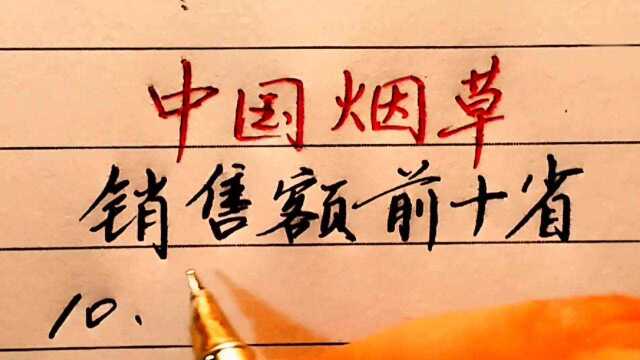 中国烟草
销售额前十省
10、